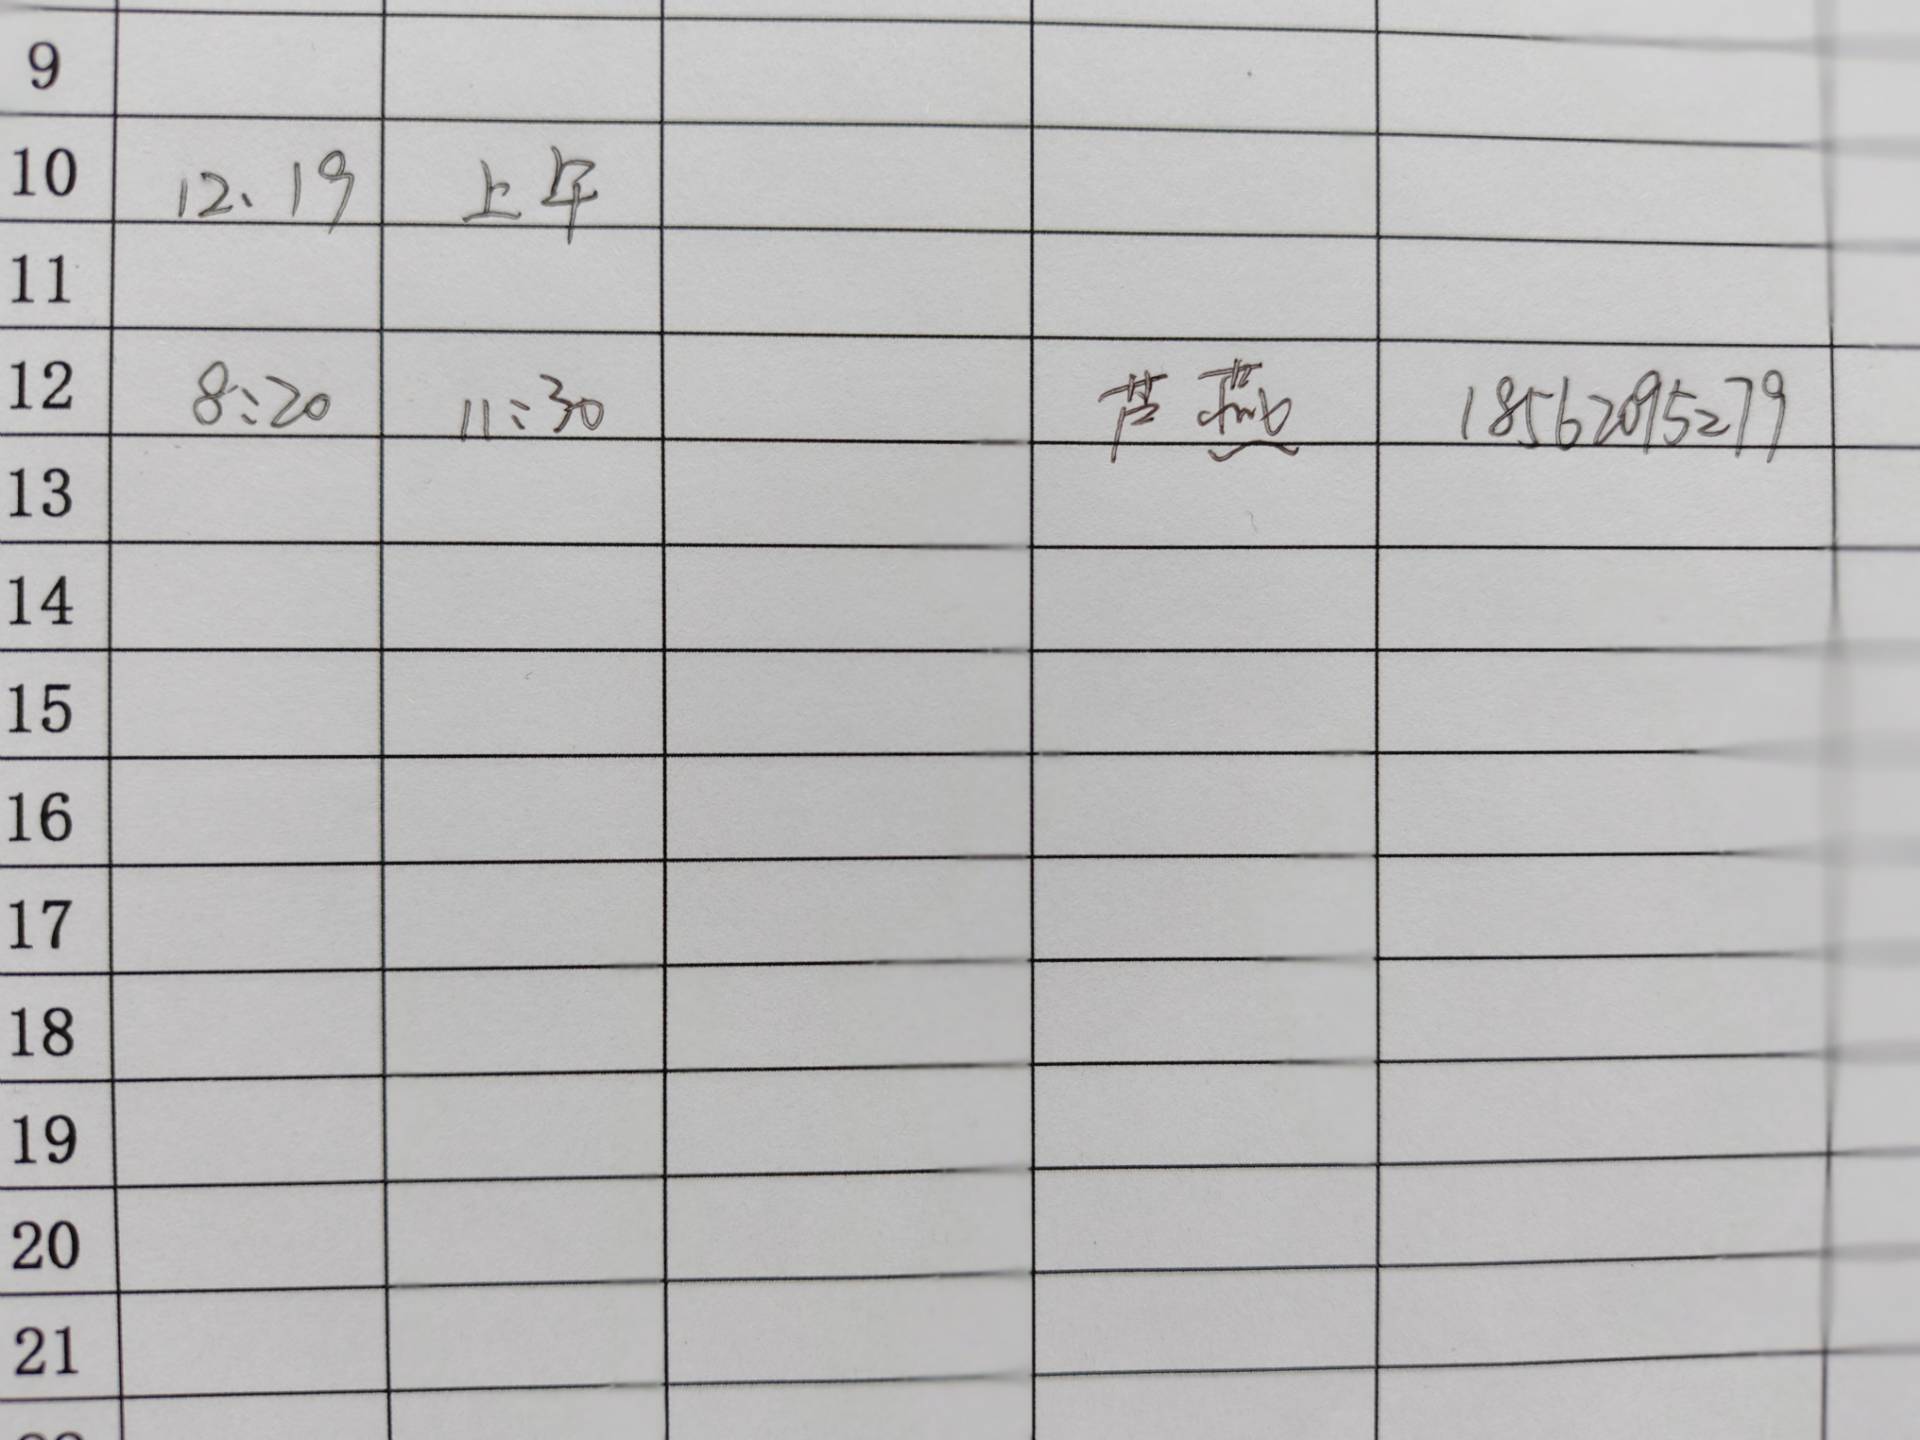 9
10 12、19 上午
11
12 8:20 11:30 芦燕 18562095279
13
14
15
16
17
18
19
20
21